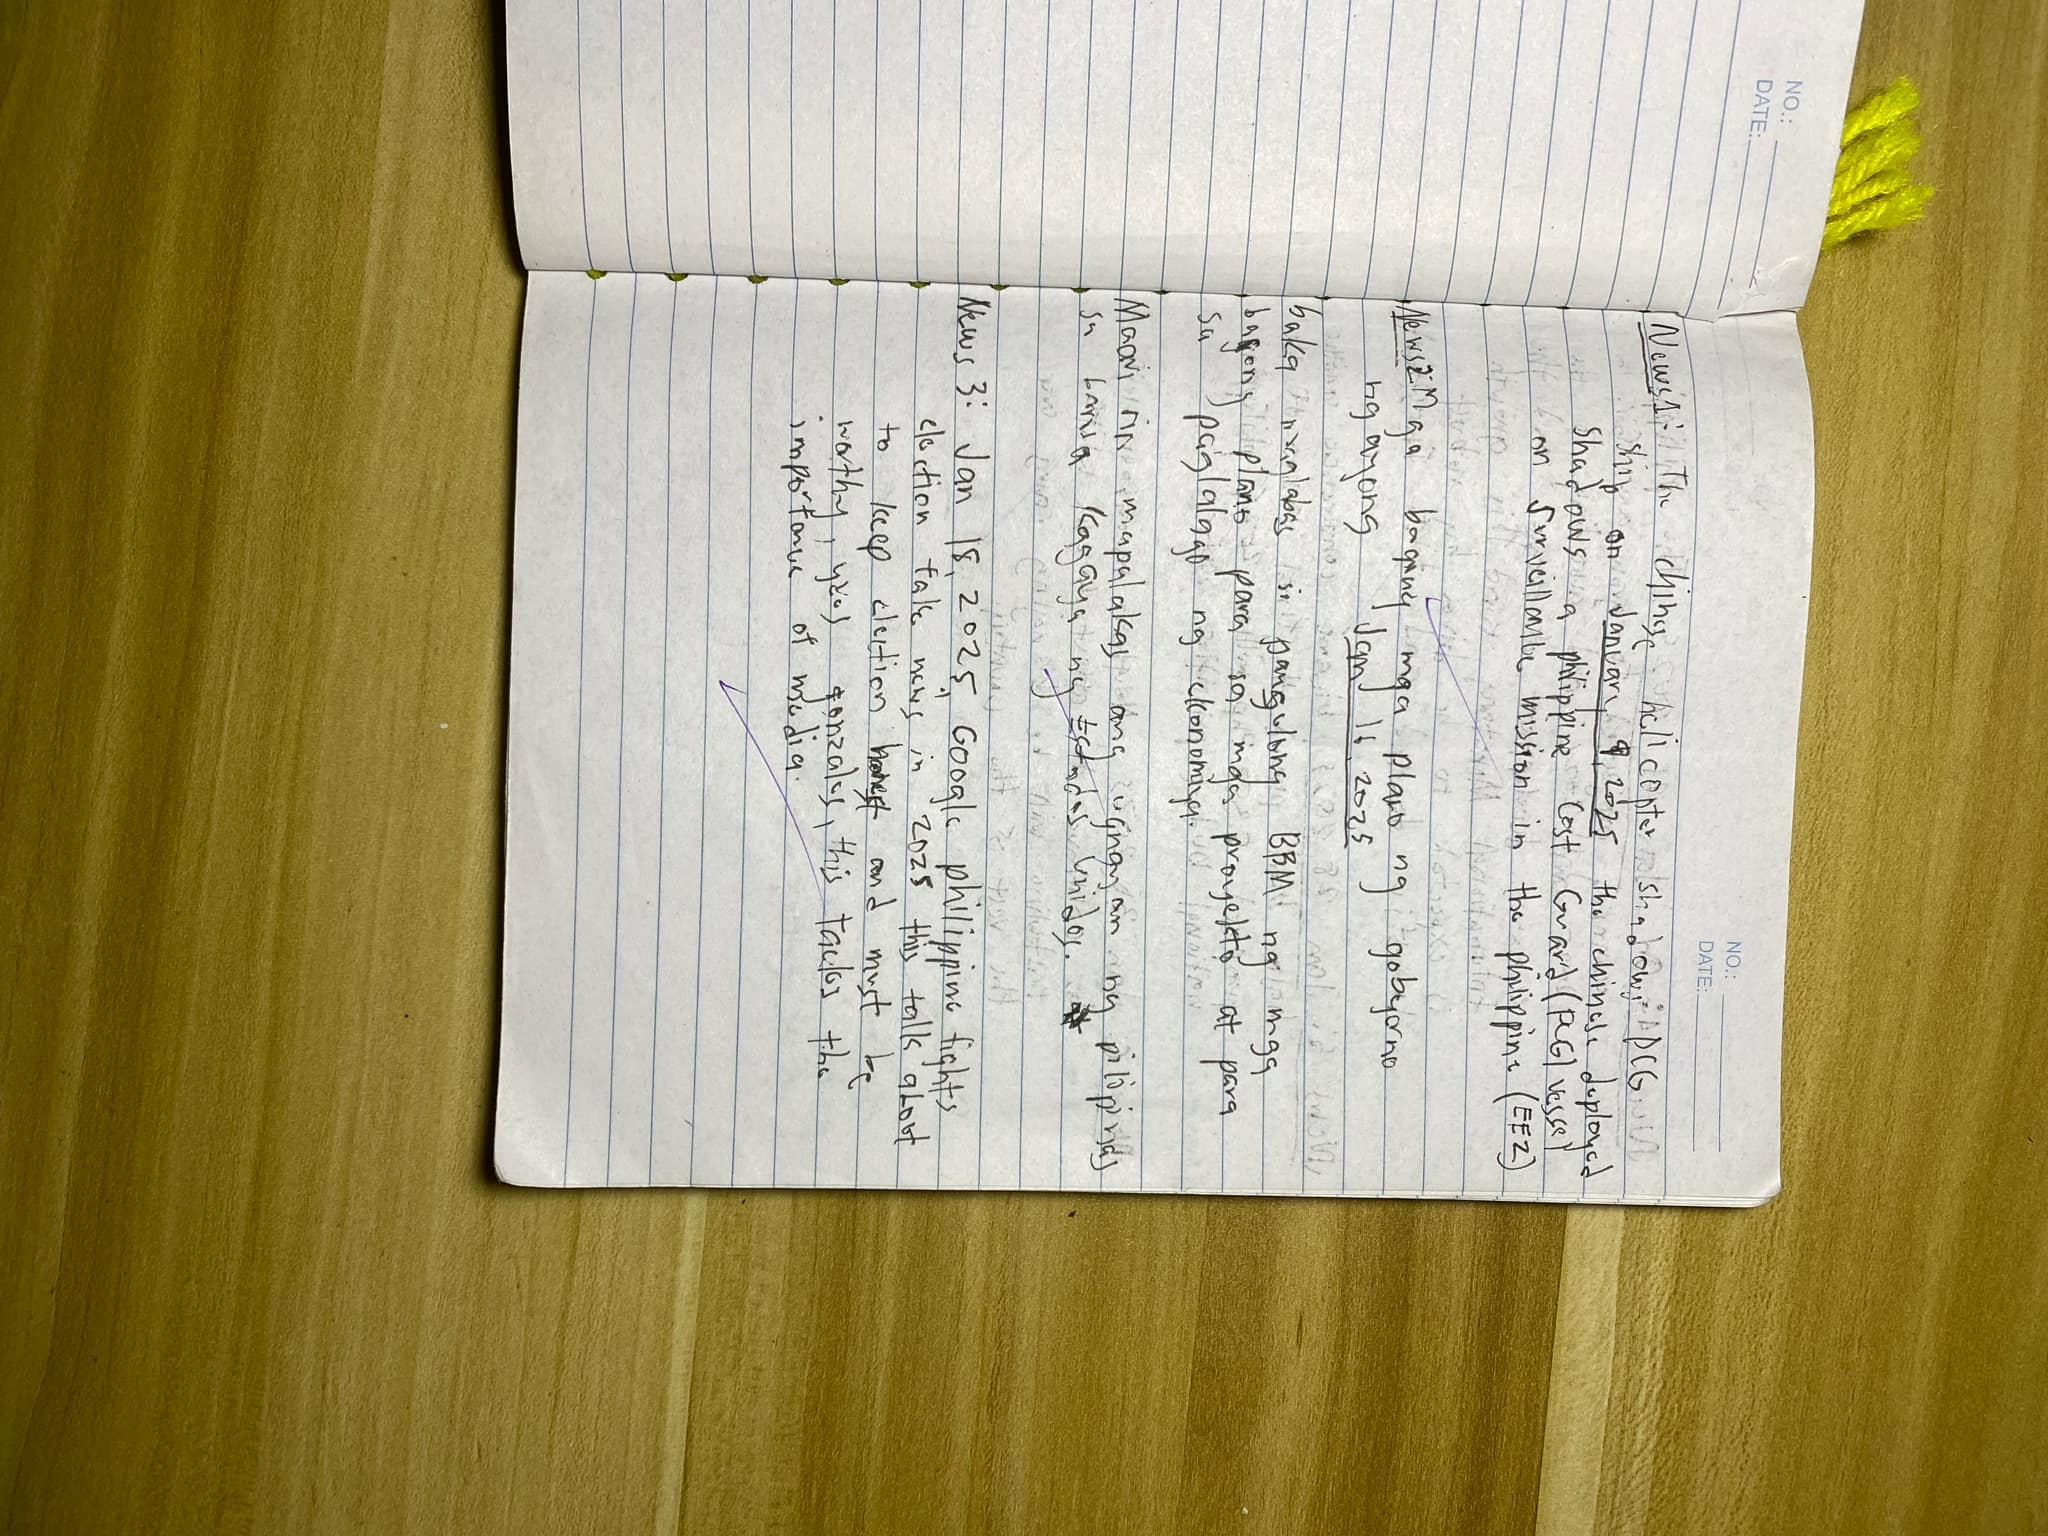 NO.:
DATE:
NO.:
DATE:
News1: The chinese helicopter shadows PCG
ship on January 9, 2025 the chinese deployed
shadows a philippine Cost Guard (PCG) vessel
on Surveillance mission in the philippine (EEZ)
News2: Mga bagong mga plano ng gobyerno
ngayong Jan 16, 2025
baka maglabas si pangulong BBM ng mga
bagong plano para sa mga proyekto at para
sa paglalago ng ekonomiya.
Maari rin mapalakas ang ugnayan ng pilipinas
sa bansa kagaya ng Estados Unidos.
News 3: Jan 18, 2025 Google philippine fights
election fake news in 2025 this talks about
to keep election honest and must be
worthy, yves gonzales, this tacles the
importance of media.